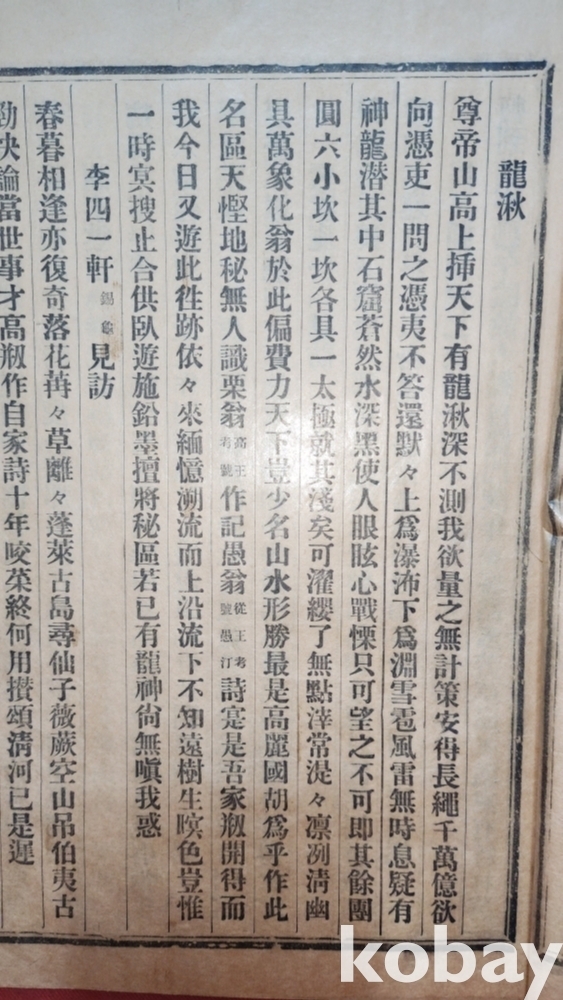 龍湫
尊帝山高上揷天下有龍湫深不測我欲量之無計策安得長繩千萬億欲
向憑吏一問之憑夷不答還默々上爲瀑沛下爲淵雪雹風雷無時息疑有
神龍潛其中石窟蒼然水深黑使人眼眩心戰慄只可望之不可即其餘團
圓六小坎一坎各具一太極就其淺矣可濯纓了無點滓常湜々凛冽淸幽
具萬象化翁於此偏費力天下豈少名山水形勝最是高麗國胡爲乎作此
名區天慳地秘無人識栗翁高王考號作記愚翁從王考號愚汀詩寔是吾家刱開得而
我今日又遊此徃跡依々來緬憶溯流而上沿流下不知遠樹生暝色豈惟
一時冥搜止合供臥遊施鉛墨擅將秘區若已有龍神尙無嗔我惑
李四一軒錫 見訪
春暮相逢亦復奇落花苒々草離々蓬萊古島尋仙子薇蕨空山吊伯夷古
勁快論當世事才高刱作自家詩十年咬菜終何用攅頌淸河已是遲
kobay